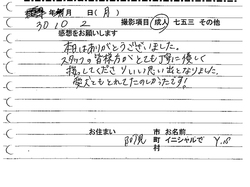 年 月 日(月) 撮影項目 成人 七五三 その他
30 10 2
感想をお願いします
本日はありがとうございました。
スタッフの皆様方がとても丁寧に優しく
接してくださりいい思い出となりました。
愛犬ともとれてたのしかったです!
お住まい お名前
町 イニシャルで Y.M
村